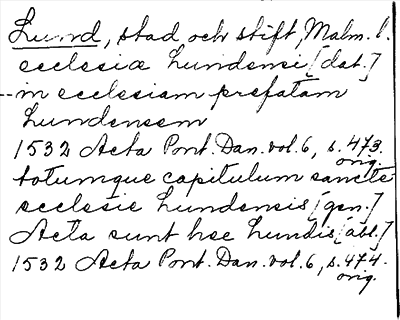 Lund, stad och stift, Malm. l.
ecclesiæ Lundensi [dat.]
--in ecclesiam prefatam
Lundensem
1532 Acta Pont. Dan. vol. 6, s. 473.
orig.
totumque capitulum sancte
ecclesie Lundensis [gen.]
Acta sunt hec Lundis [abl.]
1532 Acta Pont. Dan. vol. 6, s. 474.
orig.